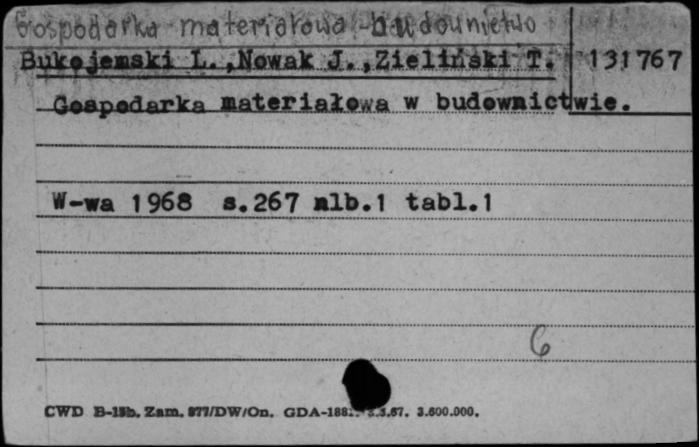 Gospodarka materiałowa - budownictwo
Bukojemski L.,Nowak J.,Zieliński T. 131767
Gospodarka materiałowa w budownictwie.
W-wa 1968 s.267 nlb.1 tabl.1
6
CWD B-15b. Zam. 977/DW/On. GDA-188 3.3.67. 3.600.000.